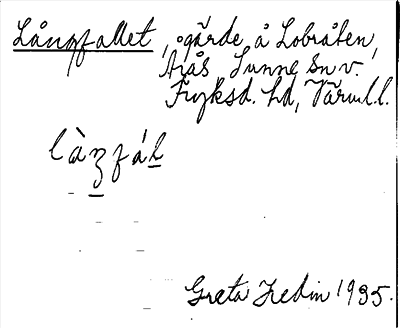 Långfallet, gärde å Lobråten,
Arås Sunne sn v.
Fryksd. hd, Värml.l.
là̀ŋfál
Greta Hedin 1935.